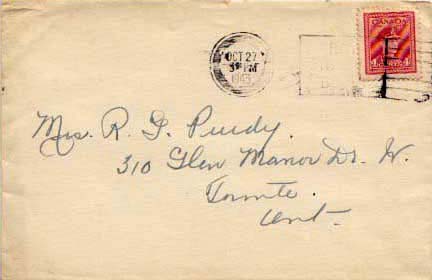 CANADA
OCT 27
PM
1943
4 4
Mrs. R. G. Purdy.
310 Glen Manor Dr. W.
Toronto.
Ont.